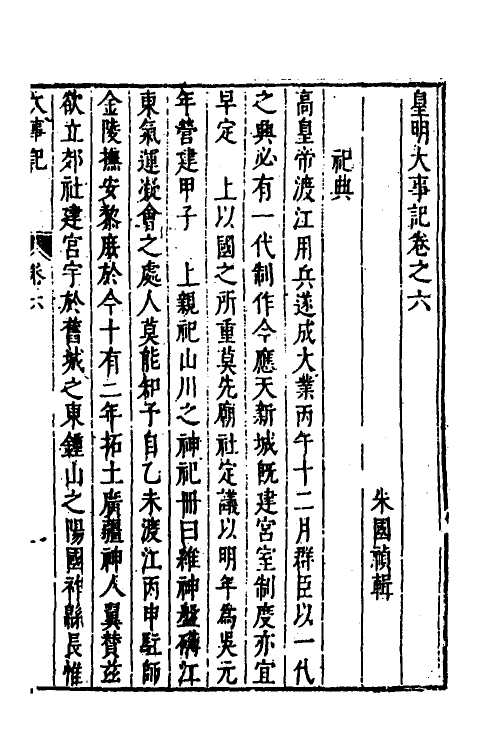 皇明大事記卷之六
朱國禎輯
祀典
高皇帝渡江用兵遂成大業丙午十二月群臣以一代
之典必有一代制作今應天新城旣建宮室制度亦宜
早定　上以國之所重莫先廟社定議以明年為吳元
年營建甲子　上親祀山川之神祀冊曰維神盤礴江
東氣運凝會之處人莫能知予自乙未渡江丙申駐師
金陵撫安黎庶於今十有二年拓土廣疆神人翼賛兹
欲立郊社建宮宇於舊城之東鍾山之陽國祚緜長惟
大事記　卷六